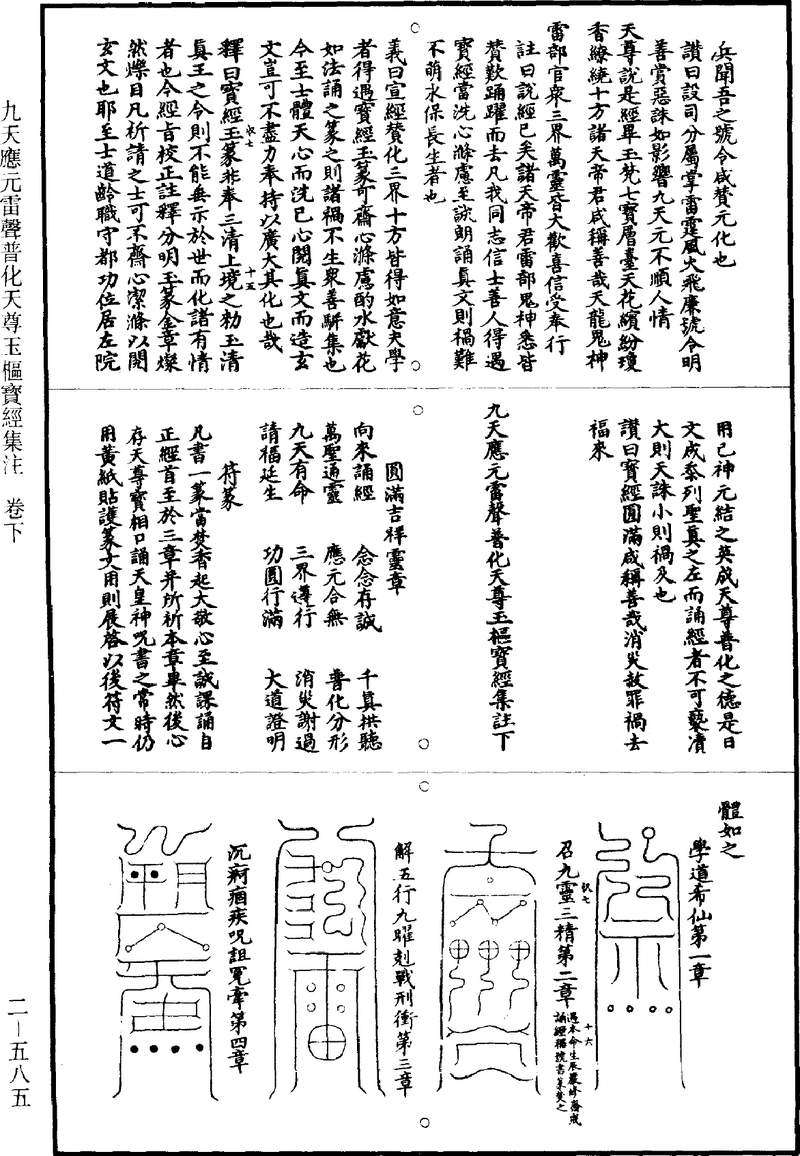 兵聞吾之號令咸贊元化也
讚曰設司分屬掌雷霆風火飛廉號令明
善賞惡誅如影響九天元不順人情
天尊說是經畢玉梵七寶層臺天花繽紛瓊
香繚繞十方諸天帝君咸稱善哉天龍鬼神
雷部官衆三界萬靈皆大歡喜信受奉行
註曰說經已矣諸天帝君雷部鬼神悉皆
贊歎踊躍而去凡我同志信士善人得遇
寶經當洗心滌慮至誠朗誦真文則禍難
不萌永保長生者也
義曰宣經贊化三界十方皆得如意夫學
者得遇寶經玉篆可齋心滌慮酌水獻花
如法誦之篆之則諸禍不生衆善駢集也
今至士體天心而洗已心閱真文而造玄
文豈可不盡力奉持以廣大其化也哉
釋曰寶經玉篆非奉三清上境之勑玉清
真王之令則不能垂示於世而化諸有情
者也今經言校正註釋分明玉篆金章燦
然爍目凡祈請之士可不齋心潔滌以閱
玄文也耶至士道齡職守都功位居左院
用己神元結之英成天尊普化之德是日
文成忝列聖真之左而誦經者不可褻瀆
大則天誅小則禍及也
讚曰寶經圓滿咸稱善哉消災赦罪禍去
福來
九天應元雷聲普化天尊玉樞寶經集註下
圓滿吉祥靈章
向來誦經 念念存誠 千真拱聽
萬聖通靈 應元合無 普化分形
九天有命 三界遵行 消災謝過
請福延生 功圓行滿 大道證明
符篆
凡書一篆當焚香起大敬心至誠課誦自
正經首至於三章并所祈本章畢然後心
存天尊寶相口誦天皇神呪書之常時仍
用黃紙貼護篆文用則展啓以後符文一
體如之
學道希仙第一章
召九靈三精第二章
遇本命生辰嚴修齋戒
誦經福後書篆焚之
解五行九曜剋戰刑衝第三章
沉痾痼疾呪詛冤牽第四章
九天應元雷聲普化天尊玉樞寶經集注 卷下
二—五八五